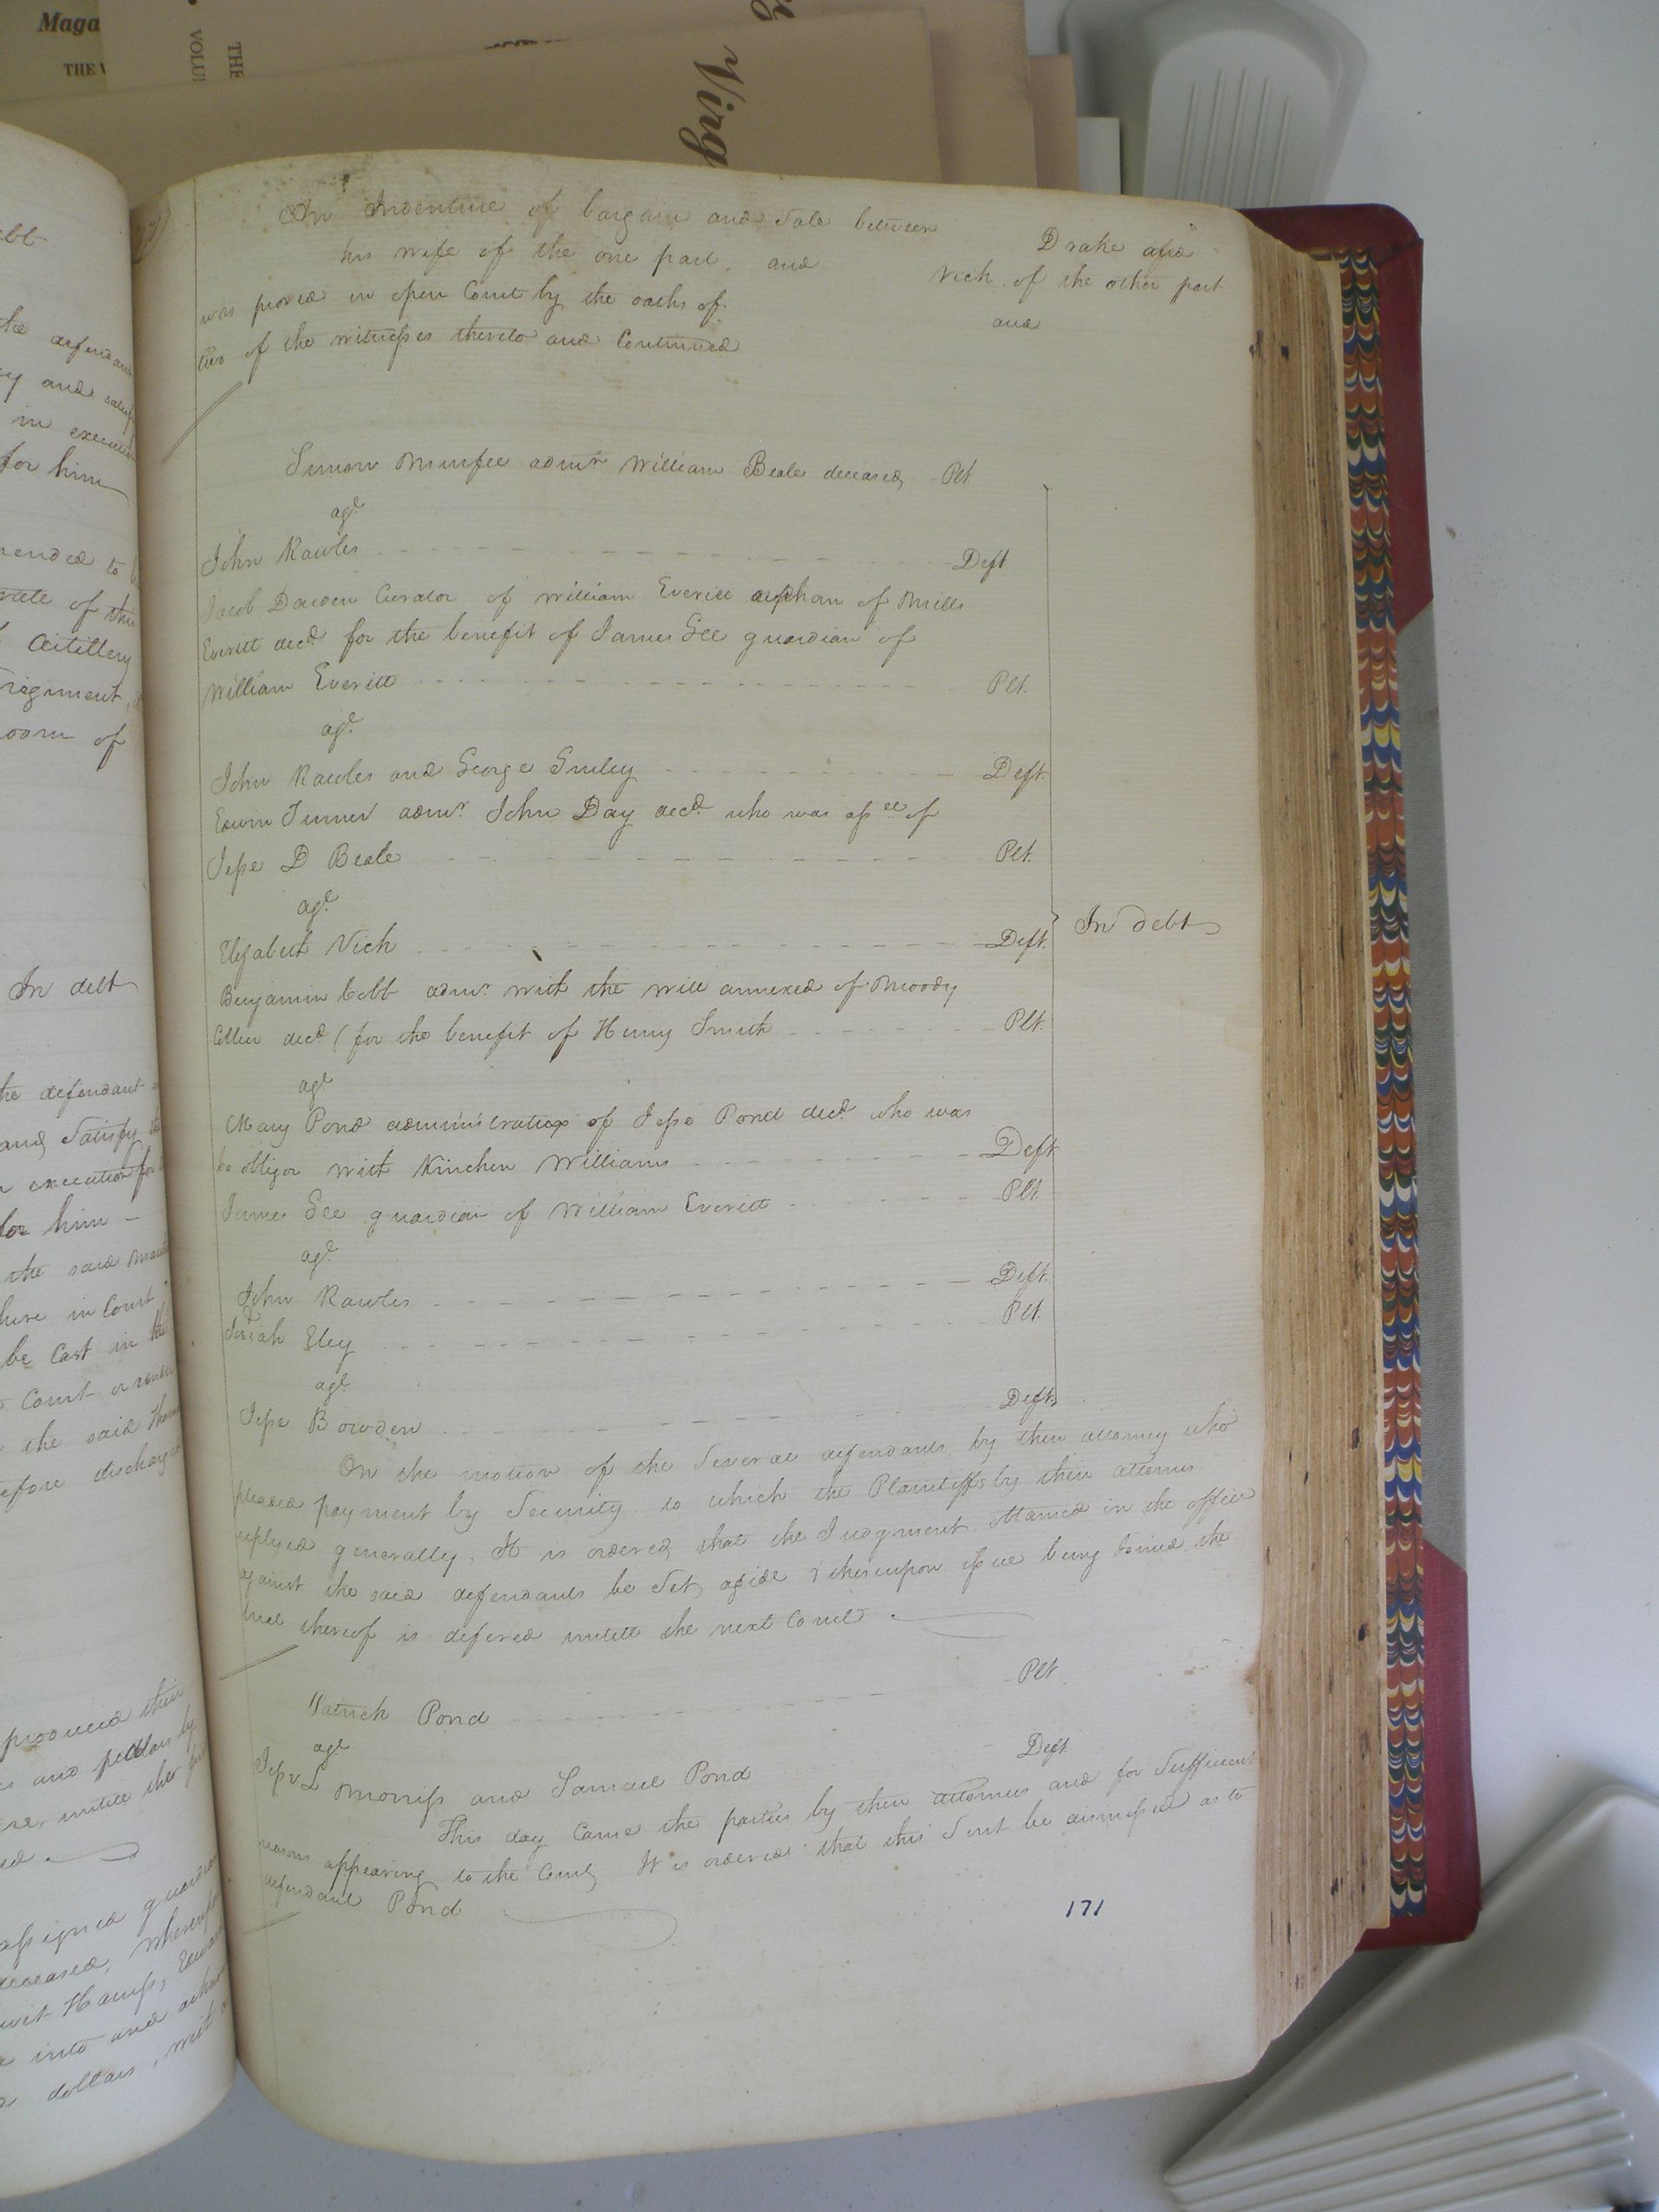 Maga
THE V
VOLU
THE
Virg
An Indenture of bargain and Sale between Drake and
his wife of the one part, and Vick of the other part
was proved in open Court by the oaths of and
two of the witnesses thereto and Continued
Simon Murfee admr William Beale deceased Plt.
agt
John Rawles Deft
Jacob Darden Curator of William Everitt orphan of Mills
Everitt decd for the benefit of James Lee guardian of
William Everitt Plt.
agt
John Rawles and George Gurley Deft
Edwin Turner admr. John Day decd. who was assee of
Jesse D Beale Plt.
agt
Elizabeth Vick Deft.
In debt
Benjamin Cobb admr. with the will annexed of Moody
decd (for the benefit of Henry Smith Plt.
agt
Mary Pond administratrix of Jesse Pond decd who was
co obligor with Kinchen Williams Deft
James Lee guardian of William Everitt Plt.
agt
John Rawles Deft.
Josiah Eley Plt.
agt
Jesse Bowden Deft.
On the motion of the Several defendants by their attorney who
pleaded payment by Security to which the Plaintiffs by their attornies
replyed generally, It is ordered that the Judgment obtained in the office
against the said defendants be Set aside & thereupon issue being Joined the
trial thereof is defered untill the next Court
Patrick Pond Plt
agt
Jesse L Morriss and Samuel Pond Deft.
This day Came the parties by their attornies and for Sufficient
reasons appearing to the Court, It is ordered that this Suit be dismissed as to
defendant Pond
171
ebt
the defendant
y and
in execution
for him
mended to
of this
artillery
regiment,
room of
In debt
the defendant
and Satisfy the
execution for
for him
the said
here in Court
be Cast in the
Court or
the said
before discharge
produced their
and
untill
assigned guardian
deceased, whereupon
wit Hamp,
into and
dollars, with